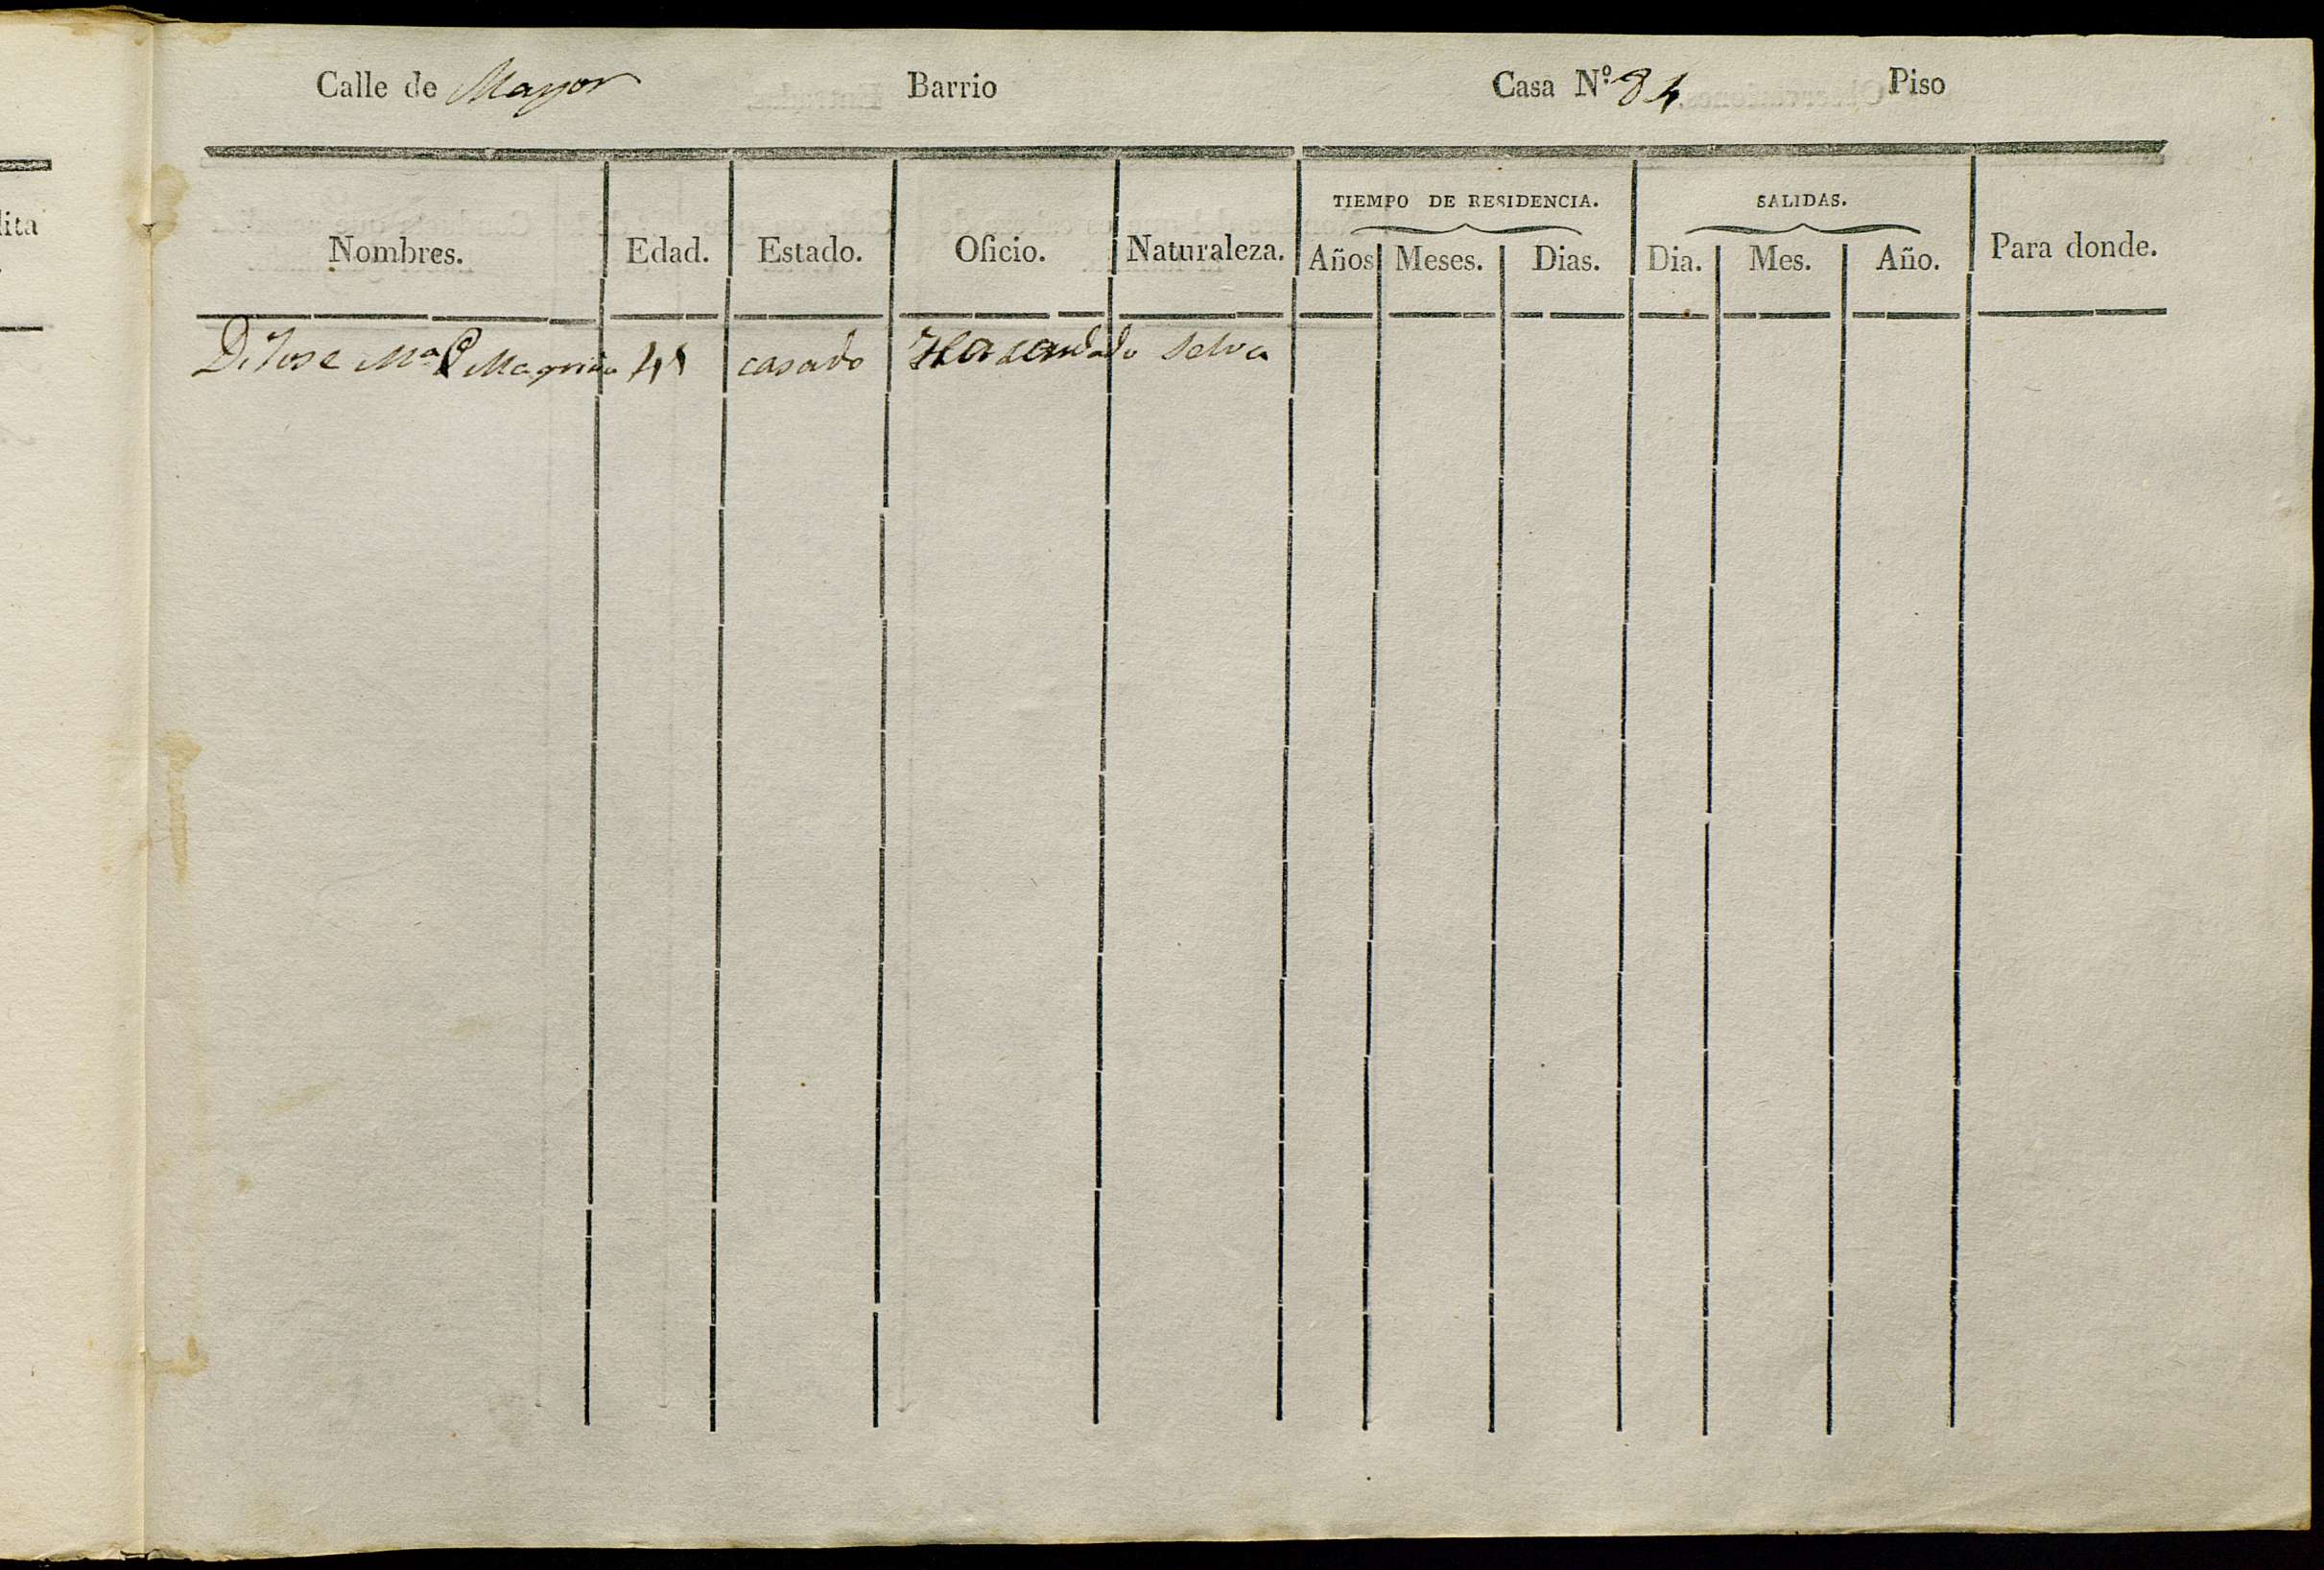 Calle de Mayor Barrio Casa N.º 84 Piso
TIEMPO DE RESIDENCIA. SALIDAS.
Nombres. Edad. Estado. Oficio. Naturaleza. Años Meses. Dias. Dia. Mes. Año. Para donde.
D. Jose Mª casado Hasandado Selva
lita